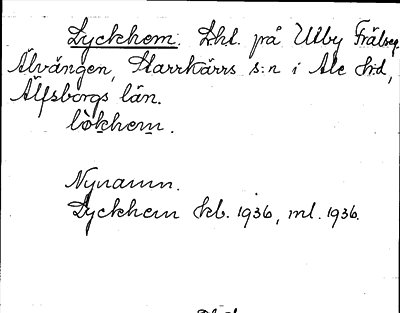 Lyckhem. Lht. på Utby Frälseg.
Älvängen, Starrkärrs s:n i Ale hd,
Älfsborgs län.
lỳkhem.
Nynamn.
Lyckhem skb. 1936, ml. 1936.